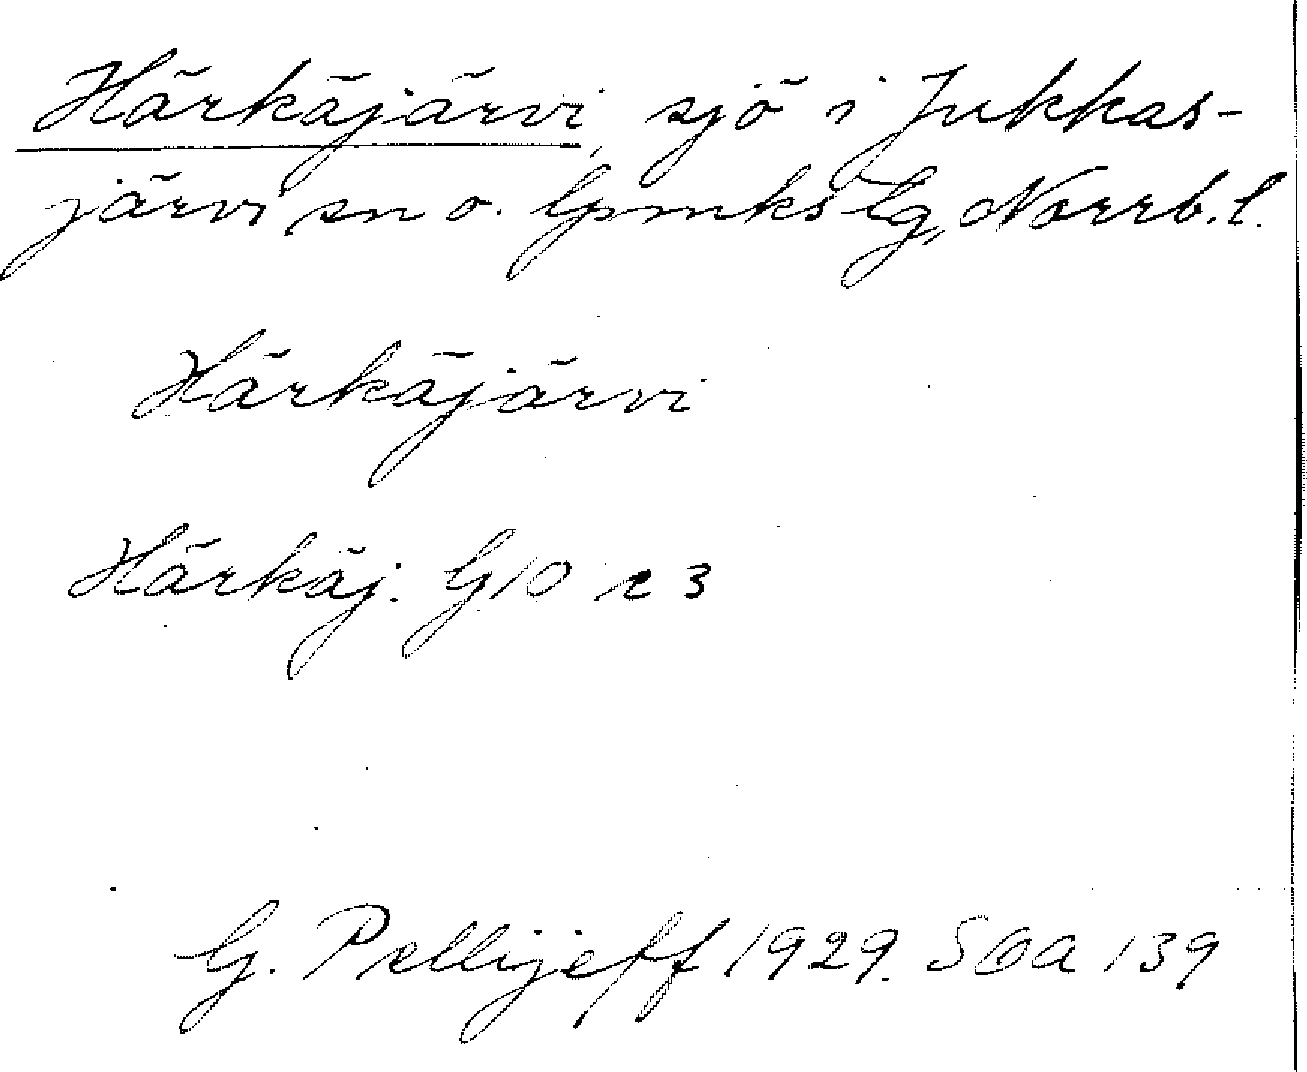 Härkäjärvi, sjö i Jukkas-
järvi sn o. lpmkslg, Norrb. l.
Härkäjärvi
Härkäj. G10 c3
G. Pellijeff 1929. SOA 139